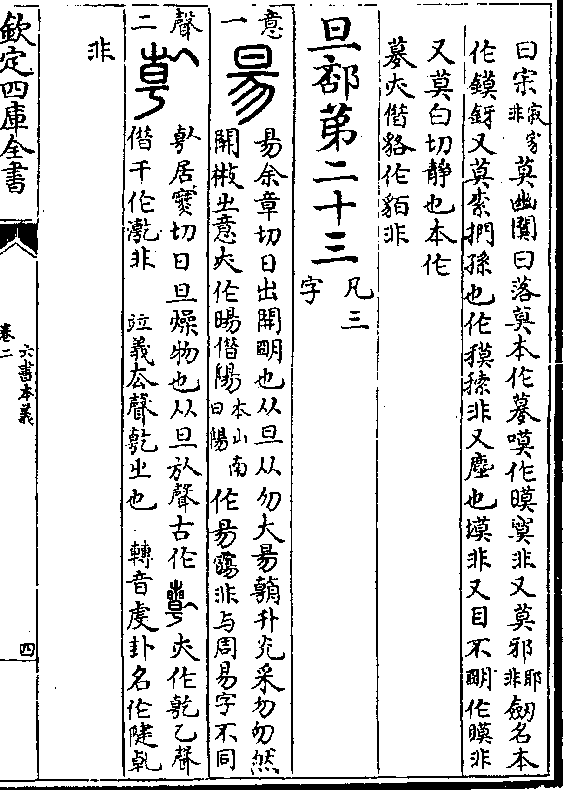 曰宗寂寥非莫幽闃曰落莫本作墓嘆作暯寞非又莫邪耶非劒名本
作鏌釾又莫索捫孫也作摸𢱢非又塵也塻非又目不明作瞙非
又莫白切靜也本作
募亦偕貉作貊非
旦部第二十三
凡三字
意一
昜
昜余章切日出開明也从旦从勿大昜朝升光采勿勿然
開㪚㞢意亦作暘偕陽本山南曰陽作昜霷非与周易字不同
聲二
倝
倝居寒切日旦燥物也从旦㫃聲古作 亦作乾乙聲
偕干作漧非 竝義太聲乾㞢也 轉音虔卦名作陡乹
非
欽定四庫全書
六書本義
卷二
四